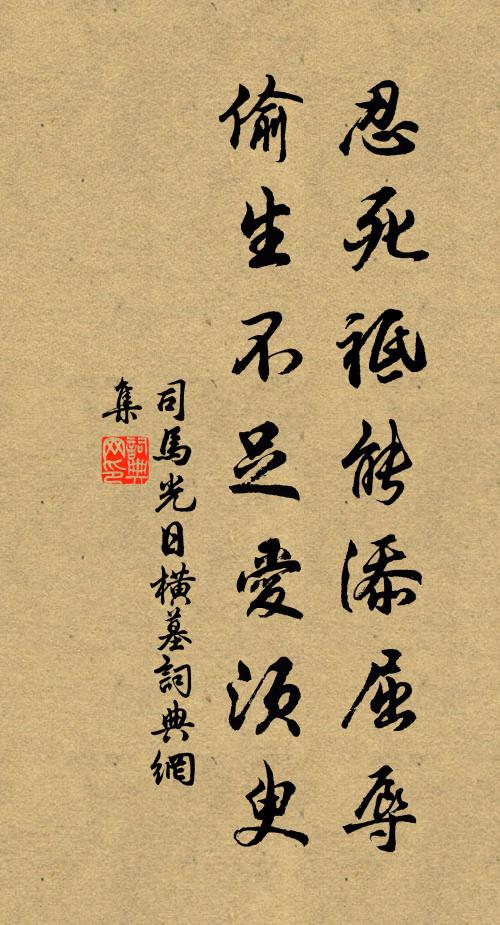 忍死祗能添屈辱
偷生不足愛須臾
司馬光日橫墓詞典網
集
詞典
网印